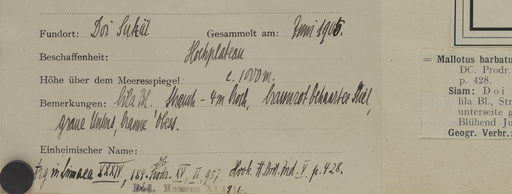 Fundort: Doi Sutäl Gesammelt am: Juni 1905.
Beschaffenheit: Hochplateau
Höhe über dem Meeresspiegel: c. 1000 m.
Bemerkungen: Lila Bl. Strauch - 4 m hoch, braunrot behaarter Stiel,
graue Unters, braune Obers.
Einheimischer Name:
Fig in Linnaea XXXIV, 184. Prodr. XV, II, 957 Hook. Fl. Brit. Ind. V p. 428.
= Mallotus barbatu
DC. Prodr.
p. 428.
Siam: Doi
lila Bl., Str
unterseite g
Blühend Ju
Geogr. Verbr.: